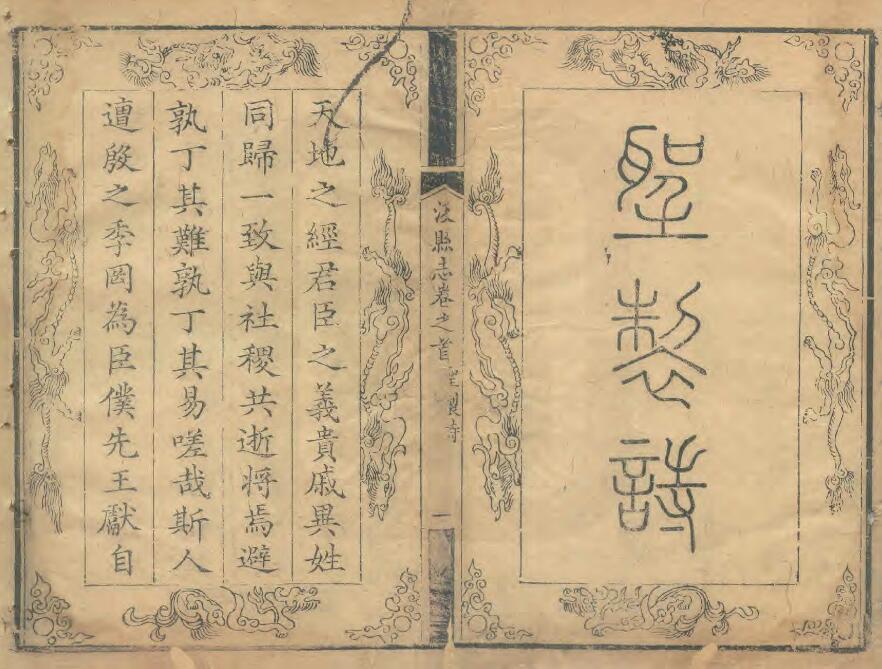 聖製詩
汲縣志卷之首 聖製詩 一
天地之經君臣之義貴戚異姓
同歸一致與社稷共逝將焉避
孰丁其難孰丁其易嗟哉斯人
遭殷之季罔為臣僕先王獻自